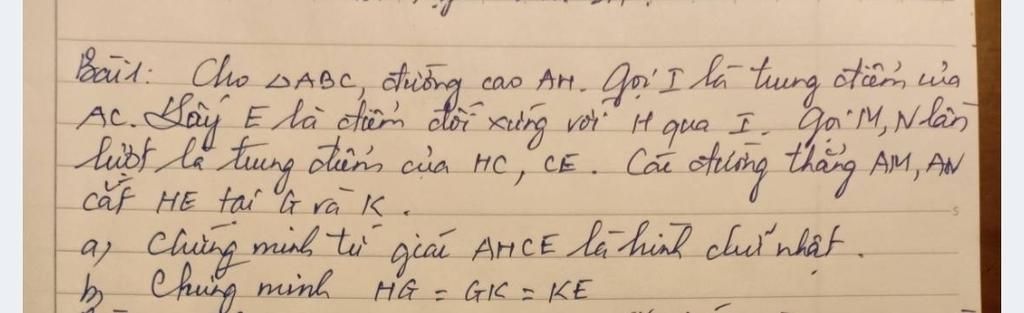 Bài 1: Cho △ABC, đường cao AH. Gọi I là trung điểm của
AC. Lấy E là điểm đối xứng với H qua I. Gọi M, N lần
lượt là trung điểm của HC, CE. Các đường thẳng AM, AN
cắt HE tại G và K.
a, Chứng minh tứ giác AHCE là hình chữ nhật.
b, Chứng minh HG = GK = KE